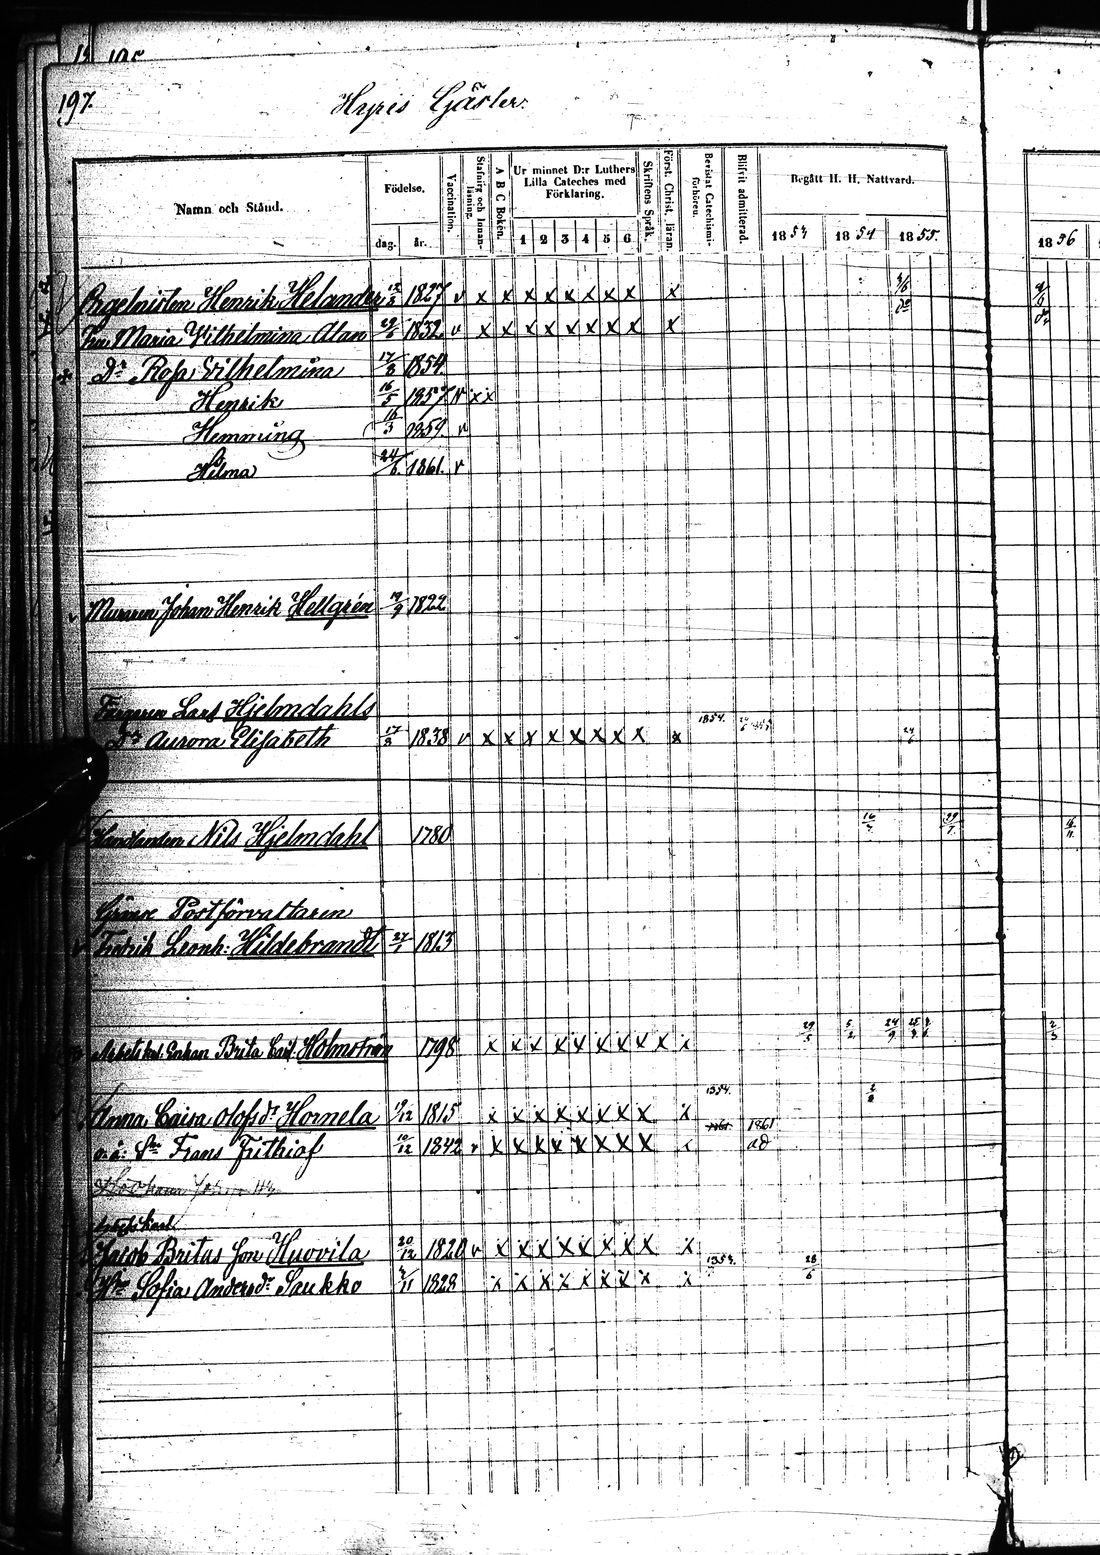 197.
Hyris Gäster.
Namn och Stånd.
Födelse.
dag.
år.
Vaccination.
Stafning och Innanläsning.
A B C Boken.
Ur minnet D:r Luthers Lilla Cateches med Förklaring.
1 2 3 4 5 6
Skriftens Språk.
Först. Christ. läran.
Bevistat Catechismiförhören.
Blifvit admitterad.
Begått H. H. Nattvard.
1853 1854 1855.
1856
Orgelnisten Henrik Helander 12/3 1827 v x x x x x x x x x
Maria Wilhelmina Alan 29/6 1832 v x x x x x x x x x
Dr Rosa Vilhelmina 17/8 1854
Henrik 16/5 1857 x x
Hemming 16/3 1859. v
Hilma 24/6 1861. v
Muraren Johan Henrik Hellgrén 19/9 1822
Färgaren Lars Hjelmdahls 1854.
Dr Aurora Elisabeth 17/3 1838 v x x x x x x x x x
Handlanden Nils Hjelmdahl 1780 16/7
Gränse Postförvaltaren
Fredrik Leonh: Hildebrandt 27/1 1813
Enkan Brita Holmström 1798 x x x x x x x x x x 29/5 2/3
Anna Caisa Olofsdr Hornela 19/12 1815 x x x x x x x x x 1854.
Frans Frithiof 10/12 1842 v x x x x x x x x x 1861
Jacob Britas Son Huovila 20/12 1820 v x x x x x x x x x
Sofia Andersdr Saukko 4/11 1828 x x x x x x x x x 1853. 28/6